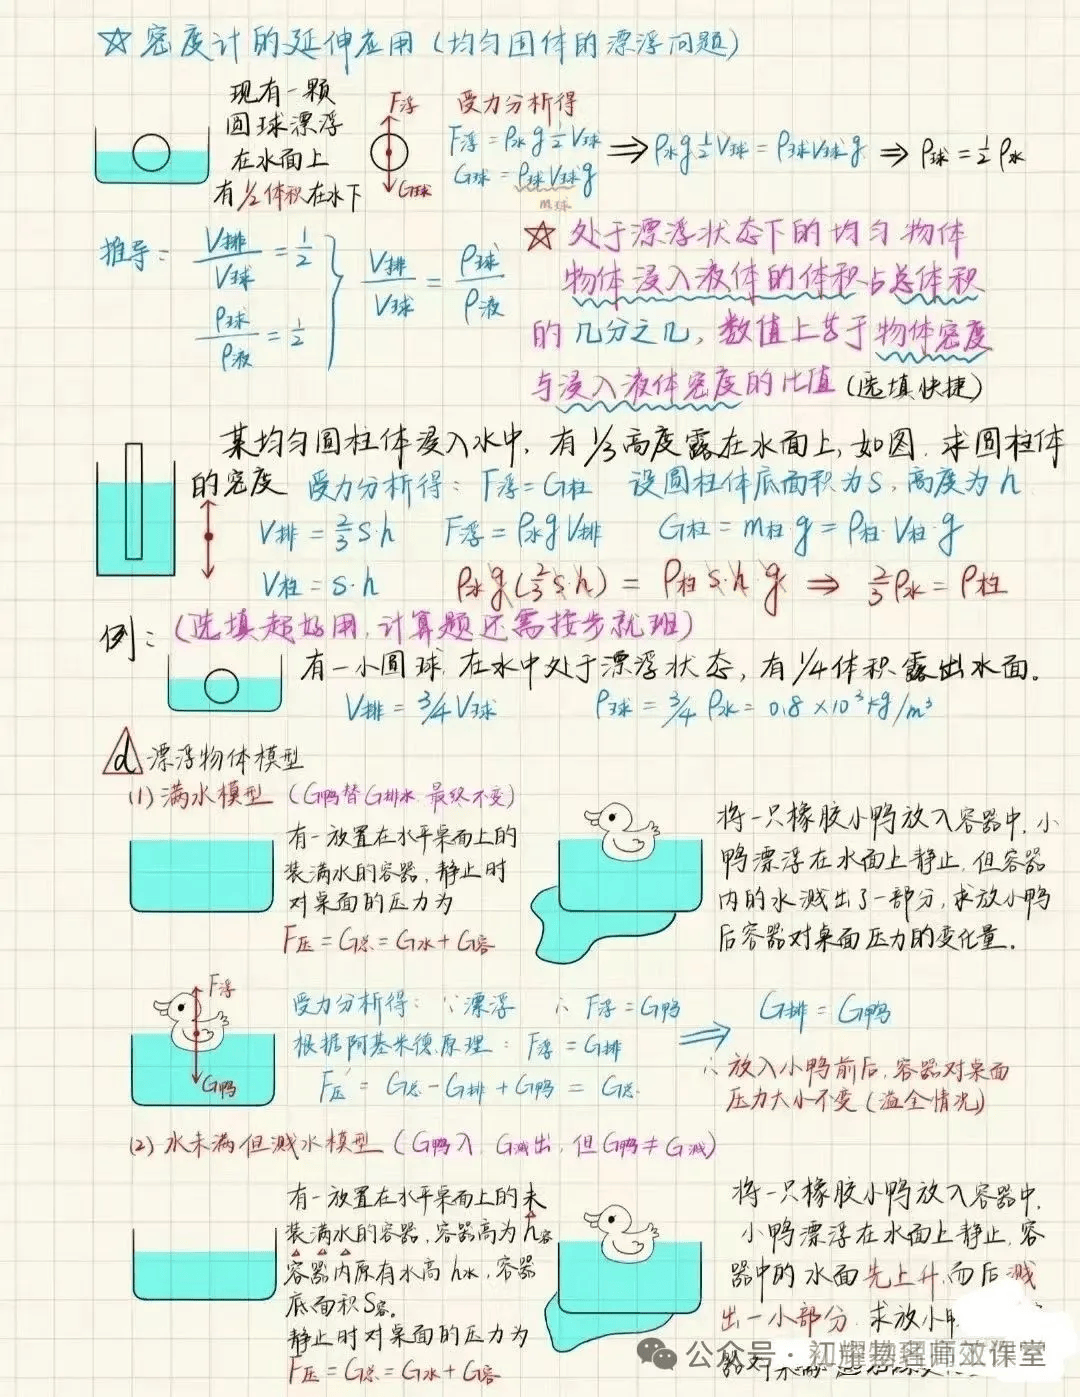 ☆ 密度计的延伸应用（均匀固体的漂浮问题）
现有一颗
圆球漂浮
在水面上
有1/2体积在水下
F浮
G球
受力分析得
F浮=ρ水g½V球
G球=ρ球V球g
m球
⇒ρ水g½V球=ρ球V球g ⇒ ρ球=½ρ水
推导：
V排/V球=1/2
ρ球/ρ液=1/2
V排/V球=ρ球/ρ液
☆ 处于漂浮状态下的均匀物体
物体浸入液体的体积占总体积
的几分之几，数值上等于物体密度
与浸入液体密度的比值（选填快捷）
某均匀圆柱体浸入水中，有1/3高度露在水面上，如图．求圆柱体
的密度 受力分析得：F浮=G柱 设圆柱体底面积为S，高度为h
V排=⅔S·h F浮=ρ水gV排 G柱=m柱g=ρ柱·V柱·g
V柱=S·h ρ水g(⅔S·h)=ρ柱S·h·g ⇒ ⅔ρ水=ρ柱
例：（选填超好用，计算题还需按步就班）
有一小圆球，在水中处于漂浮状态，有1/4体积露出水面。
V排=3/4V球 ρ球=3/4ρ水=0.8×10³kg/m³
d 漂浮物体模型
(1) 满水模型（G鸭替G排水 最终不变）
有一放置在水平桌面上的
装满水的容器，静止时
对桌面的压力为
F压=G总=G水+G容
将一只橡胶小鸭放入容器中，小
鸭漂浮在水面上静止，但容器
内的水溅出了一部分，求放小鸭
后容器对桌面压力的变化量．
F浮
G鸭
受力分析得：∵漂浮 ∴F浮=G鸭
根据阿基米德原理：F浮=G排
F压′=G总-G排+G鸭=G总
⇒ G排=G鸭
∴放入小鸭前后，容器对桌面
压力大小不变（溢全情况）
(2) 水未满但溅水模型（G鸭入，G溅出，但G鸭≠G溅）
有一放置在水平桌面上的未
装满水的容器，容器高为h容
容器内原有水高h水，容器
底面积S容。
静止时对桌面的压力为
F压=G总=G水+G容
将一只橡胶小鸭放入容器中，
小鸭漂浮在水面上静止，容
器中的水面先上升，而后溅
出一小部分．求放小
公众号·江耀物名师效课堂